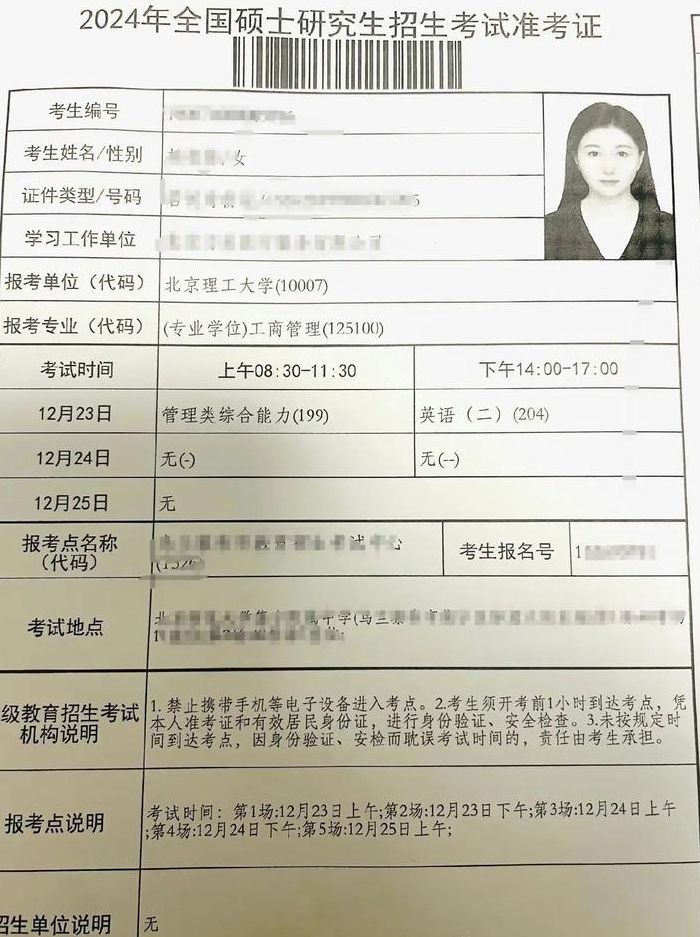 2024年全国硕士研究生招生考试准考证
考生编号
考生姓名/性别 女
证件类型/号码 5
学习工作单位
报考单位（代码） 北京理工大学(10007)
报考专业（代码） (专业学位)工商管理(125100)
考试时间 上午08:30-11:30 下午14:00-17:00
12月23日 管理类综合能力(199) 英语（二）(204)
12月24日 无(-) 无(--)
12月25日 无
报考点名称
（代码）
考生报名号 1
考试地点
级教育招生考试
机构说明
1. 禁止携带手机等电子设备进入考点。2.考生须开考前1小时到达考点，凭
本人准考证和有效居民身份证，进行身份验证、安全检查。3.未按规定时
间到达考点，因身份验证、安检而耽误考试时间的，责任由考生承担。
报考点说明
考试时间：第1场:12月23日上午;第2场:12月23日下午;第3场:12月24日上午
;第4场:12月24日下午;第5场:12月25日上午;
招生单位说明 无